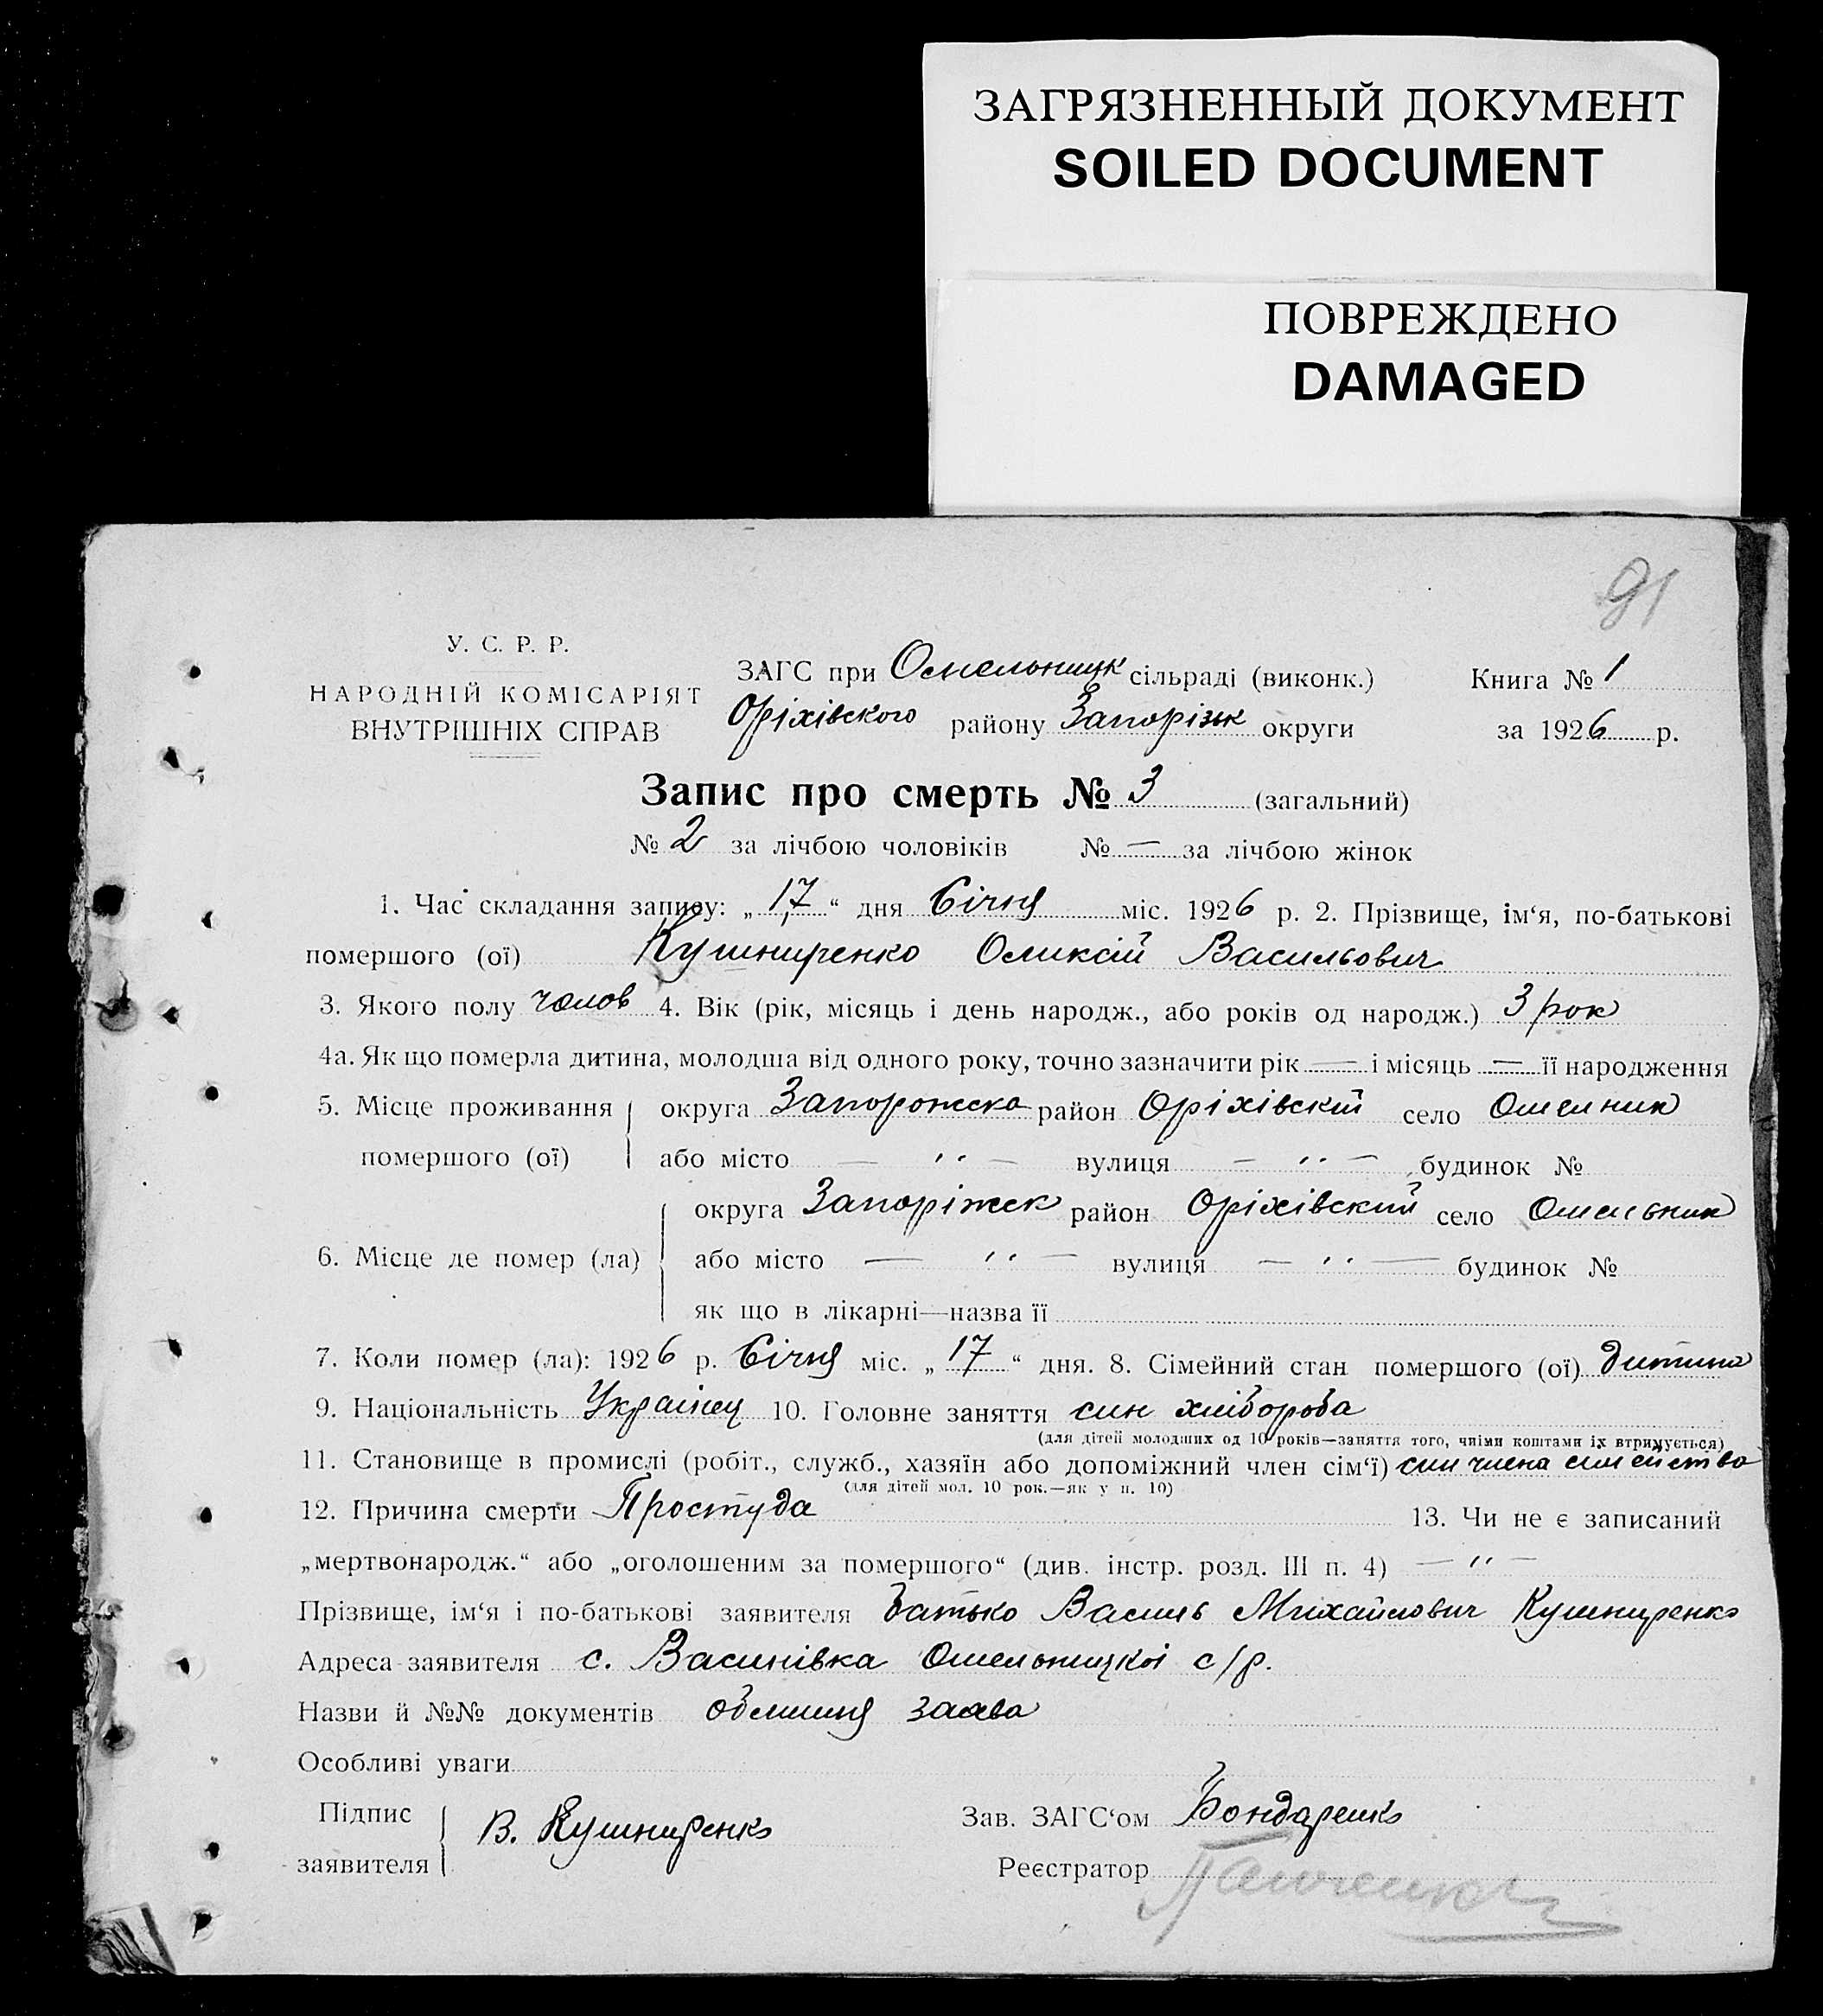 ЗАГРЯЗНЕННЫЙ ДОКУМЕНТ
SOILED DOCUMENT
ПОВРЕЖДЕНО
DAMAGED
91
У. С. Р. Р.
НАРОДНІЙ КОМІСАРІЯТ
ВНУТРІШНІХ СПРАВ
ЗАГС при Омельницк сільраді (виконк.) Книга № 1
Оріхівского району Запоріжк округи за 1926 р.
Запис про смерть № 3 (загальний)
№ 2 за лічбою чоловіків № — за лічбою жінок
1. Час складання запису: „17“ дня Січня міс. 1926 р. 2. Прізвище, ім‘я, по-батькові
помершого (ої) Кушниренко Оликсій Васильович
3. Якого полу чолов 4. Вік (рік, місяць і день народж., або років од народж.) 3 рок
4а. Як що померла дитина, молодша від одного року, точно зазначити рік — і місяць — її народження
5. Місце проживання округа Запорожска район Оріхівскій село Омелник
помершого (ої) або місто — ″ — вулиця — ″ — будинок №
округа Запоріжск район Оріхівский село Омельник
6. Місце де помер (ла) або місто — ″ — вулиця — ″ — будинок №
як що в лікарні—назва її
7. Коли помер (ла): 1926 р. Січня міс. „17“ дня. 8. Сімейний стан помершого (ої) дитина
9. Національність Украінец 10. Головне заняття син хлібороба
(для дітей молодших од 10 років—заняття того, чиїми коштами їх втримується)
11. Становище в промислі (робіт., служб., хазяїн або допоміжний член сім‘ї) син члена сімейства
(для дітей мол. 10 рок.—як у п. 10)
12. Причина смерти Простуда 13. Чи не є записаний
„мертвонародж.“ або „оголошеним за помершого“ (див. інстр. розд. III п. 4) — ″ —
Прізвище, ім‘я і по-батькові заявителя батько Василь Михайлович Кушниренко
Адреса заявителя с. Васинівка Омельницкоі с/р.
Назви й №№ документів заява
Особливі уваги
Підпис В. Кушниренко Зав. ЗАГС‘ом Бондаренко
заявителя Реєстратор